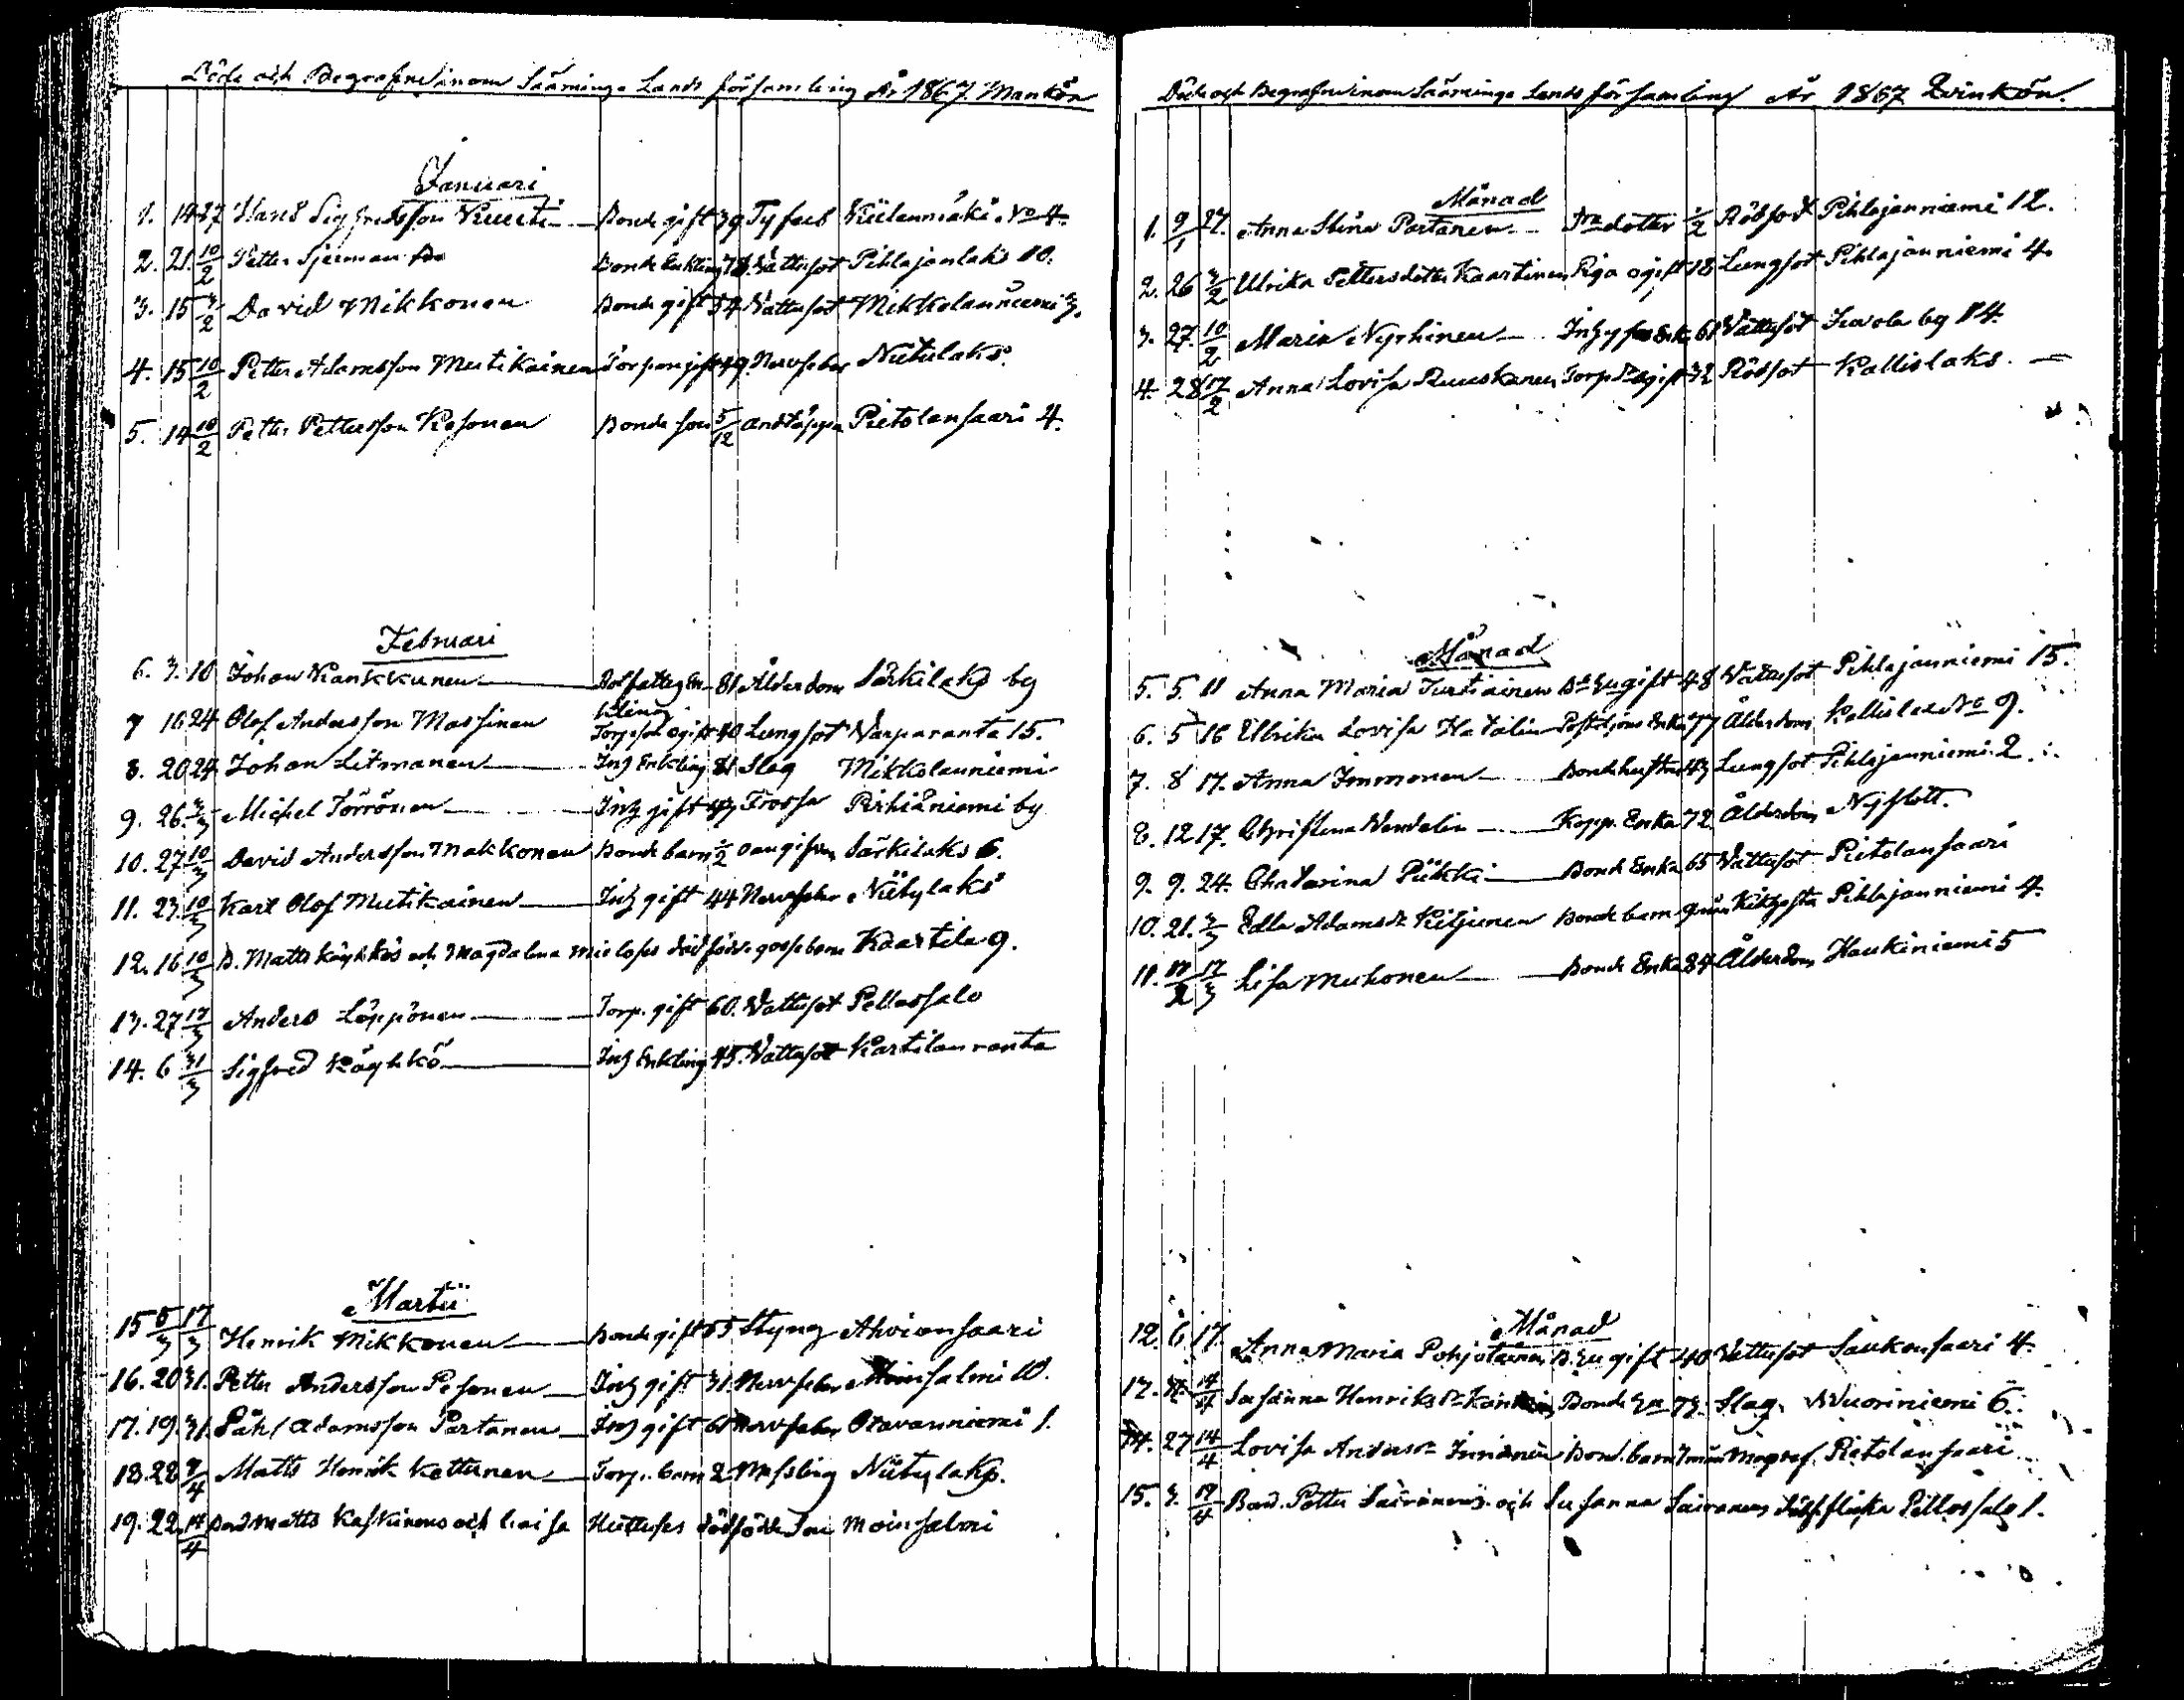 Döde och Begrafne inom Sääminge Lands församling År 1867. Mankön
Januari
1. 14 27 Hans Sigfridsson Bonde gift 39 Tyfeb No 4.
2. 21. 10/2 Petter Bonde Enkling Vattusot Pihlajanlaks 10.
3. 15 3/2 David Mikkonen Bonde gift 54 Vattusot Mikkolanniemi 3.
4. 15 10/2 Petter Adamsson Mutikainen Torpare gift 49. Nervfeber Niittylaks
5. 14 10/2 Petter Pettersson Pesonen Bonde son 5/12 andtäppa Pietolansaari 4.
Februari
6. 3. 10 Johan Kankkunen Rotfattig En- 81 Ålderdom Särkilaks by
kling
7 16 24 Olof Andersson Massinen Torp.son ogift 40 Lungsot Warparanta 15.
8. 20 24 Johan Litmanen Inh Enkling 81 Slag Mikkolanniemi
9. 26. 3/3 Michel Törrönen Inh gift 47 Frossa Pirhiäniemi by
10. 27 10/3 David Andersson Makkonen Bonde barn 1/2 oangifven Särkilaks 6.
11. 23. 10/3 Karl Olof Mutikainen Inh gift 44 Nervfeber Niitylaks
12. 16 10/3 B. Matts Käyhkös och Magdalena dödfödde gossebarn Kaartila 9.
13. 27 17/3 Anders Löppönen Torp. gift 60. Vattusot Pellossalo
14. 6 31/3 Sigfred Käyhkö Inh Enkling 75. Vattusot Kartilanranta
Martii
15 8/3 17/3 Henrik Mikkonen Bonde gift 55 Styng Ahvionsaari
16. 20 31. Petter Andersson Pesonen Inh gift 31. Nervfeber Moinsalmi 10.
17. 19. 31. Påhl Adamsson Partanen Inh gift 61 Nervfeber Otavanniemi 1.
18. 28 7/4 Matts Henrik Kettunen Torp. barn 2 Messling Niitylaks.
19. 22. 14/4 Bond Matts Kaskinens och Caisa Huttuses dödfödde Son Moinsalmi
Döde och Begrafne inom Sääminge Lands församling År 1867 Qvinkön.
Månad
1. 9/1 27. Anna Stina Partanen dotter 1/2 Rödsot Pihlajanniemi 12.
2. 26 3/2 Ulrika Pettersdotter Kaartinen Piga ogift 18 Lungsot Pihlajanniemi 4.
3. 27. 10/2 Maria Nyrhinen Enk. 61 Vattusot Juvola by 14.
4. 28 17/2 Anna Lovisa Ruuskanen ogift 32 Rödsot Kallislaks.
Månad
5. 5. 11 Anna Maria Turtiainen gift 48 Vattusot Pihlajanniemi 15.
6. 5 16 Ulrika Lovisa Enka 77 Ålderdom No 9.
7. 8 17. Anna Immonen Bondehustru 43 Lungsot Pihlajanniemi 2
8. 12 17. Christina Wendelin Kopp. Enka 72. Ålderdom Nyslott.
9. 9. 24. Chatarina Piikki Bonde Enka 65 Vattusot Pietolansaari
10. 21. 3/3 Edla Adamsdr Kiljunen Bonde barn 9 mån Kikhosta Pihlajanniemi 4.
11. 17/2 17/3 Lisa Muhonen Bonde Enka 84 Ålderdom Haukiniemi 5
Månad
12. 6 17. Anna Maria Pohjolainen gift 40 Vattusot Saukonsaari 4.
13. 14/4 Susanna Henriksdr Bonde 73. Slag. Wuoriniemi 6.
14. 27 14/4 Lovisa Andersdr Bond. barn 7 mån Pietolansaari
15. 3. 14/4 Bond. Petter och Susanna flicka Pellossalo 1.